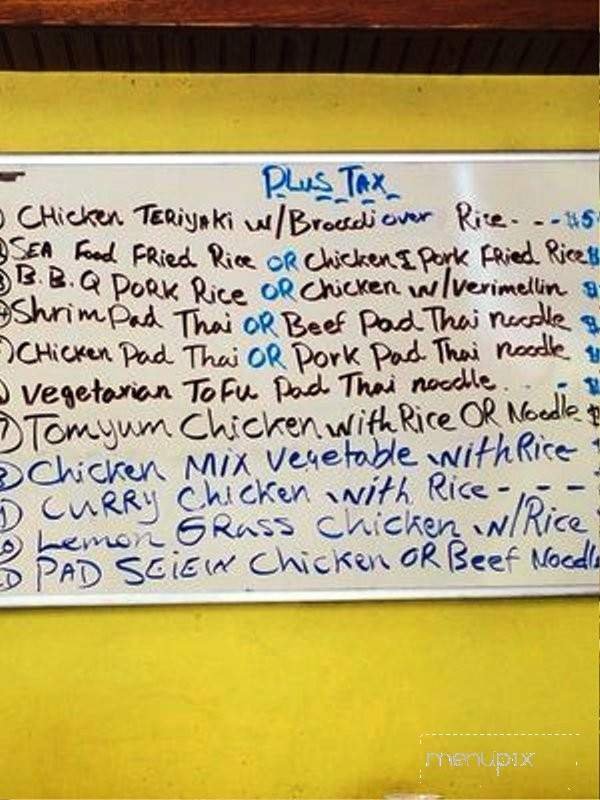 PLUS TAX
CHicken TERiyaki w/Broccoli over Rice - - - $5
SEA Food FRied Rice OR Chicken & Pork FRied Rice $
B.B.Q PORK Rice OR Chicken w/verimellin $
④ Shrim Pad Thai OR Beef Pad Thai noodle $
CHicken Pad Thai OR Pork Pad Thai noodle $
Vegetarian ToFu Pad Thai noodle . . . - $
⑦ Tomyum Chicken with Rice OR Noodle $
⑧ Chicken Mix Vegetable with Rice
CURRY Chicken with Rice - - - -
Lemon GRass Chicken w/Rice
PAD SEIEW Chicken OR Beef Noodl
menupix